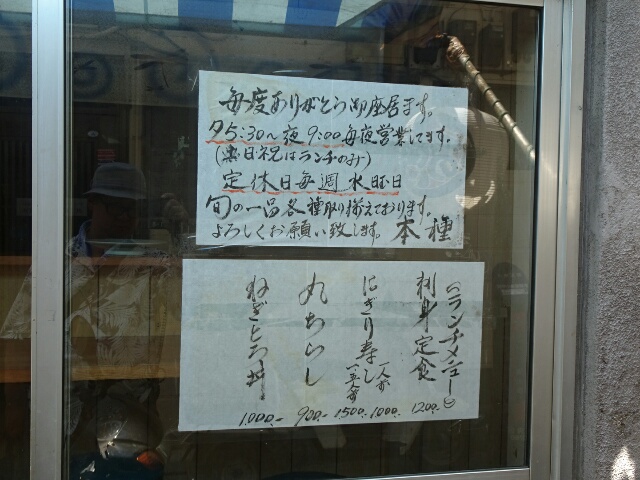 毎度ありがとう御座居ます。
夕5:30〜夜9:00毎夜営業してます。
(日祝はランチのみ)
定休日毎週水曜日
旬の一品各種取り揃えております。
よろしくお願い致します。本種
(ランチメニュー)
刺身定食 1200.
にぎり寿し 一人前 1000. 一.五人前 1500.
丸ちらし 900.-
ねぎとろ丼 1.000.-